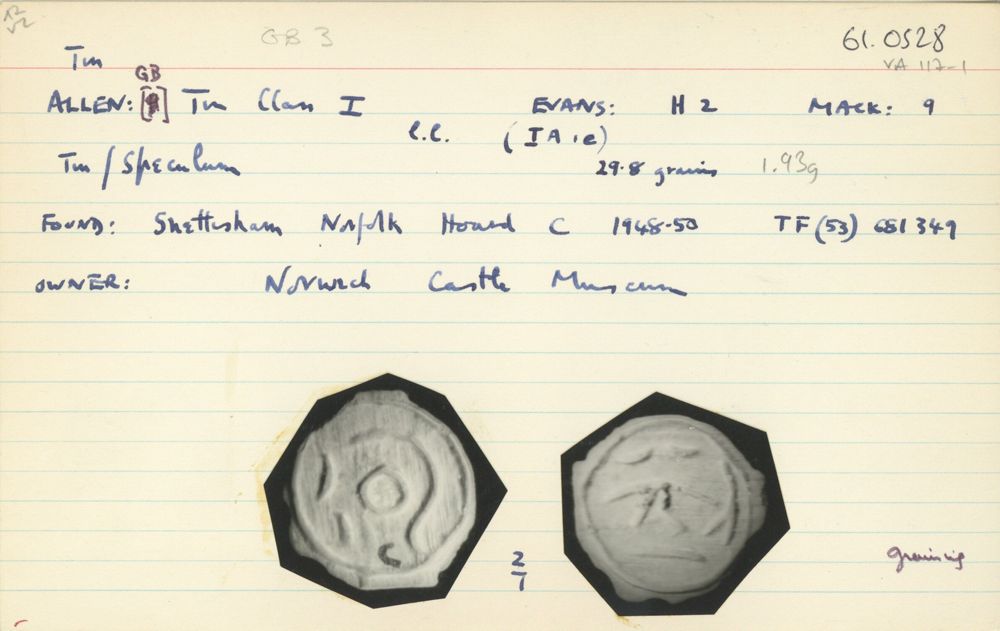 GB 3 61.0528
Tin VA 117-1
GB
ALLEN: [9] Tin Class I EVANS: H 2 MACK: 9
l.c. (IA ie)
Tin / Speculum 29.8 grains 1.93g
FOUND: Snettisham Norfolk Hoard C 1948-50 TF (53) 681349
OWNER: Norwich Castle Museum
2
7